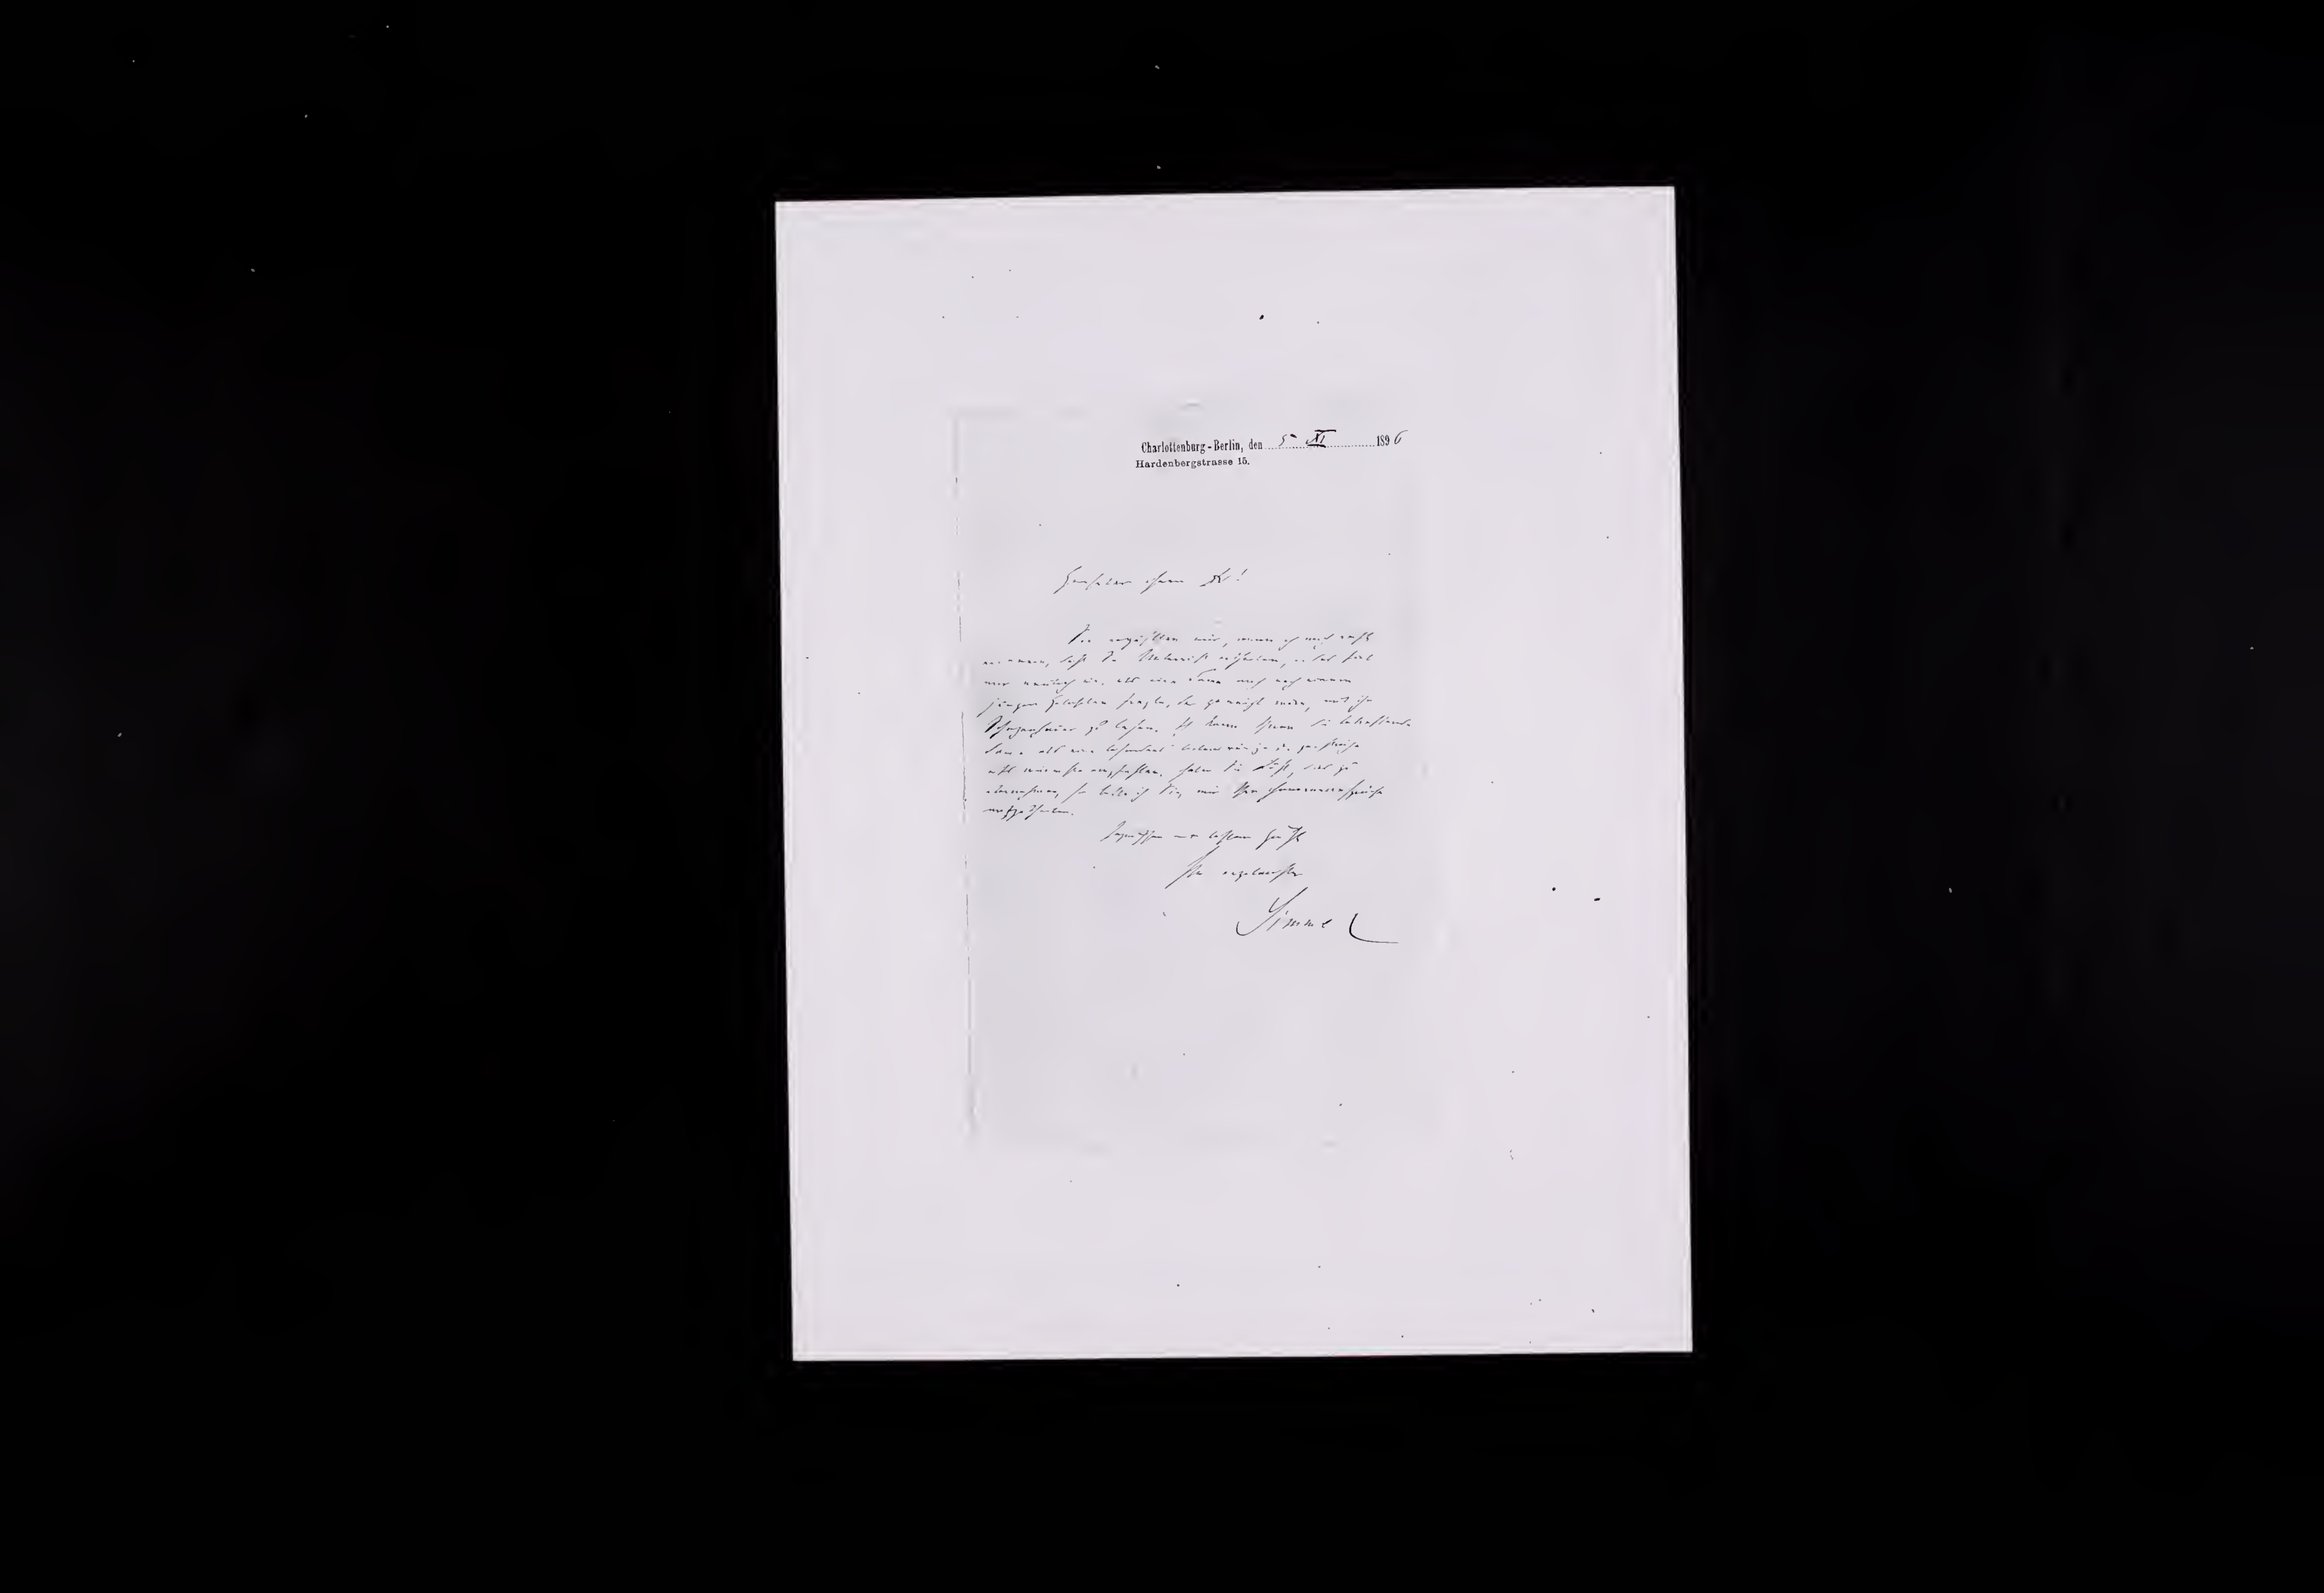 Charlottenburg-Berlin, den 5 XI 1896
Hardenbergstrasse 15.
Geehrter Herr Dr!
Sie erzählten mir, wenn ich mich recht
daß Sie Unterricht ertheilen, das fiel
mir neulich ein, als eine Dame mich nach einem
jungen Gelehrten fragte, der geneigt wäre, mit ihr
Schopenhauer zu lesen. Ich kann Ihnen die betreffende
Dame als eine
empfehlen. Haben Sie Lust, das zu
übernehmen, so bitte ich Sie, mir Ihre Honoraransprüche
mitzutheilen.
Inzwischen mit bestem Gruß
Ihr ergebenster
Simmel